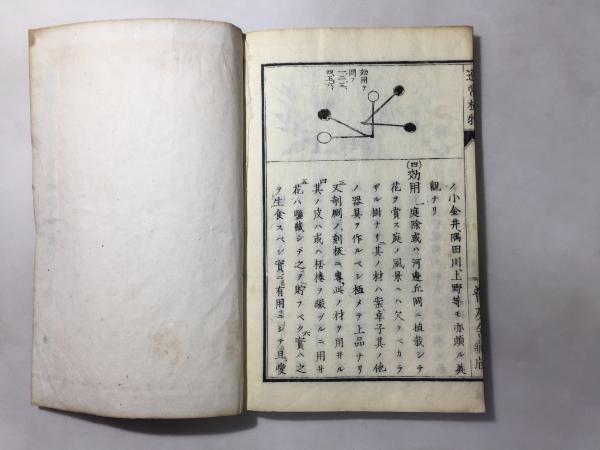 通常植物
効用ヲ
問フ
一、二、三、
四、五、六、
ノ小金井隅田川上野等モ亦頗ル美
觀ナリ
(四)効用 一庭除或ハ河邊丘岡ニ植栽シテ
花ヲ賞ス庭ノ風景ニハ欠クベカラ
ザル樹ナリ 二其ノ材ハ案卓子其ノ他
ノ器具ヲ作ルベシ極メテ上品ナリ
三又剞劂ノ刻板ニ專ラ此ノ材ヲ用井ル
四其ノ皮ハ或ハ桮棬ヲ綴ヅルニ用井
五花ハ鹽藏シテ之ヲ貯フベク 六實ハ之
ヲ生食スベシ實ニ有用ニシテ且愛